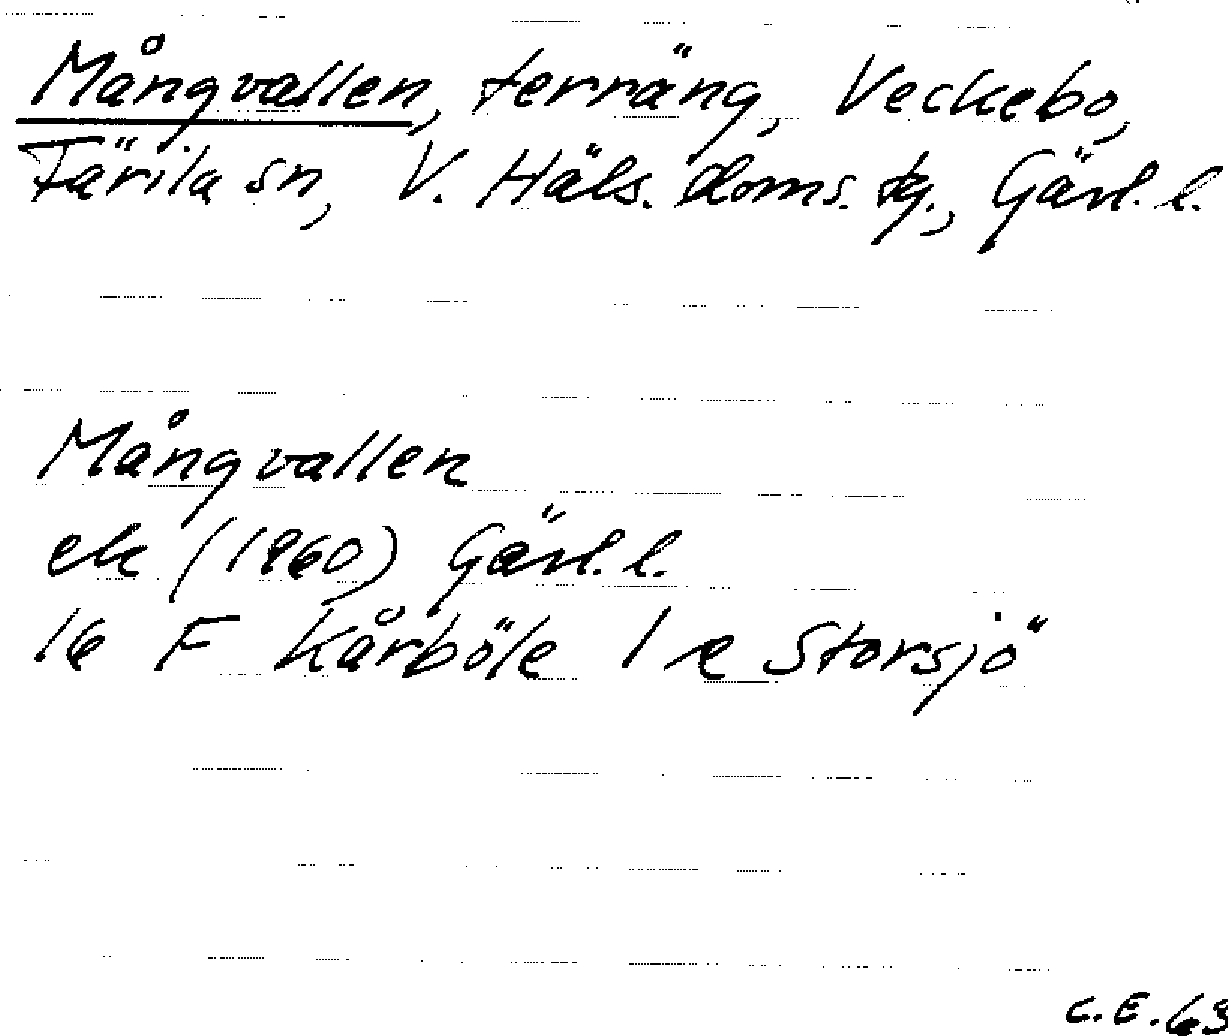 Mångvallen, terräng, Veckebo,
Färila sn, V. Häls. doms. tg., Gävl. l.
Mångvallen
ek (1960) Gävl. l.
16 F Kårböle 1 e Storsjö
C.E. 63